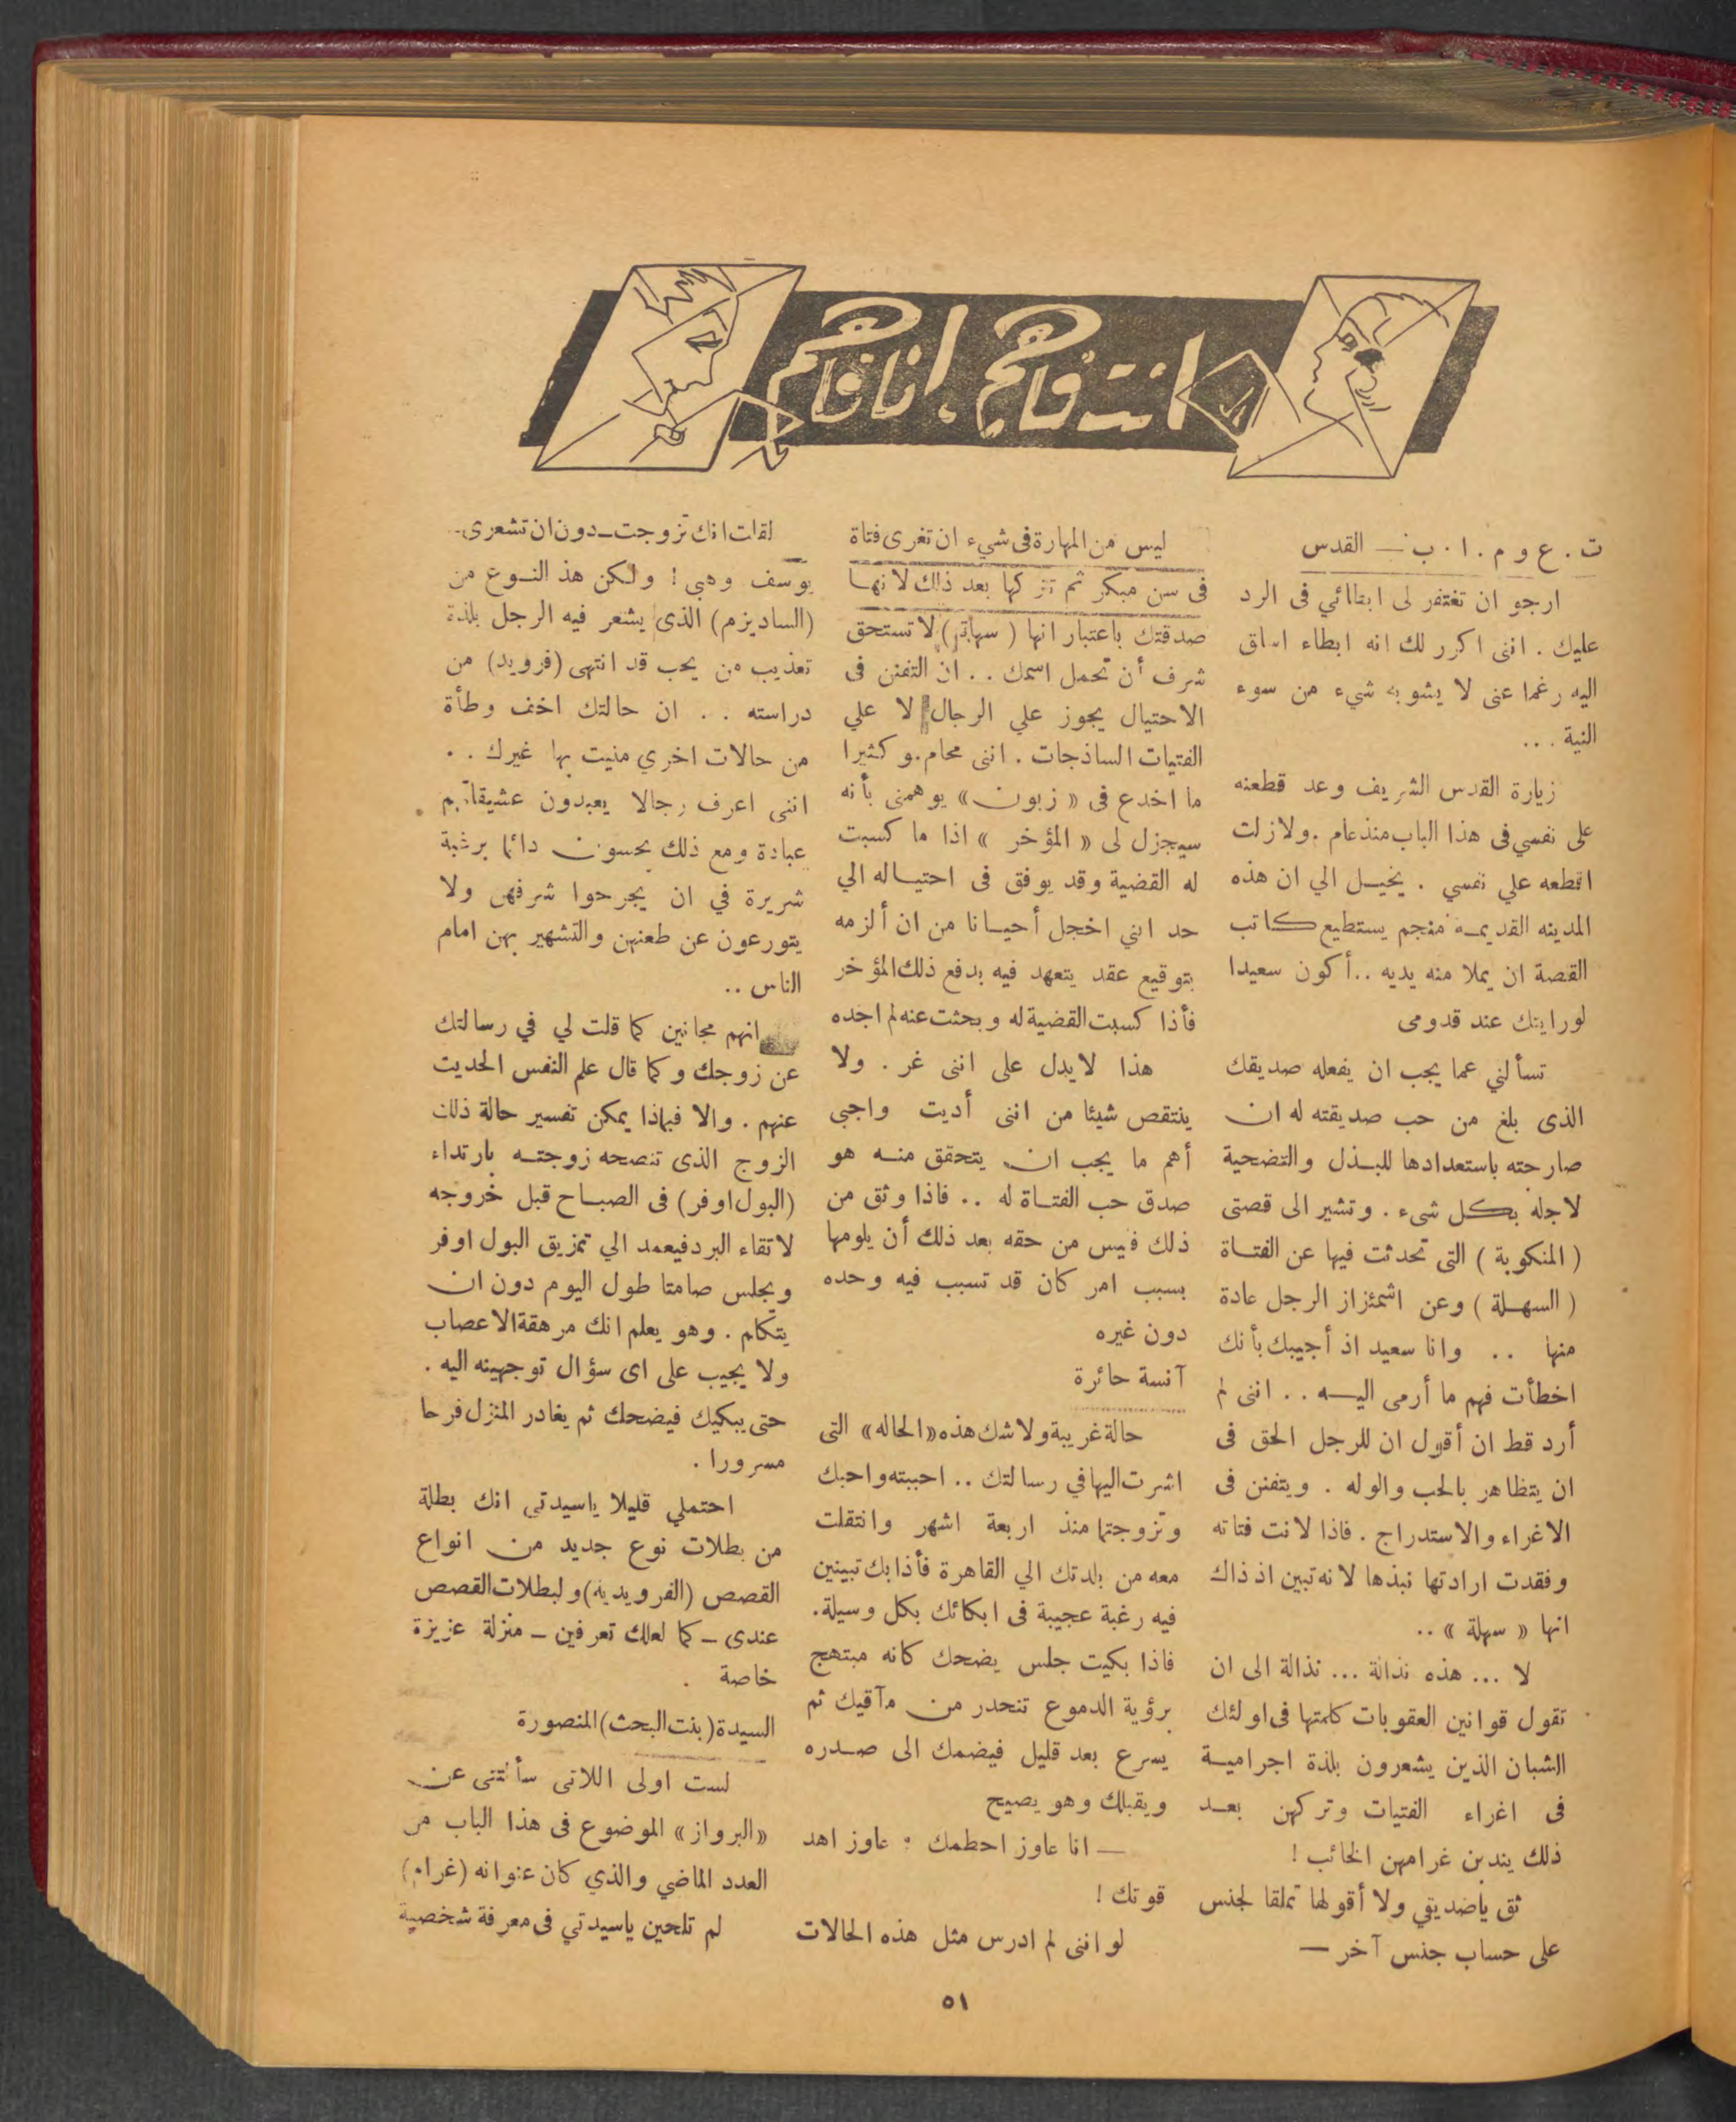 انت فاهم . انا فاهم
ت . ع و م . ا . ب — القدس
ارجو ان تغتفر لى ابطائي فى الرد
عليك . اننى اكرر لك انه ابطاء اساق
اليه رغما عنى لا يشوبه شيء من سوء
النية ...
زيارة القدس الشريف وعد قطعته
على نفسي فى هذا الباب منذ عام . ولازلت
اقطعه علي نفسي . يخيل الي ان هذه
المدينه القديمه منجم يستطيع كاتب
القصة ان يملا منه يديه .. أكون سعيدا
لو رايتك عند قدومى
تسألني عما يجب ان يفعله صديقك
الذى بلغ من حب صديقته له ان
صارحته باستعدادها للبذل والتضحية
لاجله بكل شىء . وتشير الى قصتى
( المنكوبة ) التى تحدثت فيها عن الفتاة
( السهلة ) وعن اشمئزاز الرجل عادة
منها .. وانا سعيد اذ أجيبك بأنك
اخطأت فهم ما أرمى اليه .. اننى لم
أرد قط ان أقول ان للرجل الحق فى
ان يتظاهر بالحب والوله . ويتفنن فى
الاغراء والاستدراج . فاذا لانت فتاته
وفقدت ارادتها نبذها لانه تبين اذ ذاك
انها « سهلة » ..
لا ... هذه نذالة ... نذالة الى ان
تقول قوانين العقوبات كلمتها فى اولئك
الشبان الذين يشعرون بلذة اجرامية
فى اغراء الفتيات وتركهن بعد
ذلك يندبن غرامهن الخائب !
ثق ياصديقي ولا أقولها تملقا لجنس
على حساب جنس آخر —
ليس من المهارة فى شيء ان تغرى فتاة
فى سن مبكر ثم تتركها بعد ذاك لانها
صدقتك باعتبار انها ( سهلة ) لا تستحق
شرف أن تحمل اسمك .. ان التفنن فى
الاحتيال يجوز علي الرجال لا علي
الفتيات الساذجات . اننى محام . وكثيرا
ما اخدع فى « زبون » يوهمنى بأنه
سيجزل لى « المؤخر » اذا ما كسبت
له القضية وقد يوفق فى احتياله الي
حد انني اخجل أحيانا من ان ألزمه
بتوقيع عقد يتعهد فيه بدفع ذلك المؤخر
فأذا كسبت القضية له وبحثت عنه لم اجده
هذا لا يدل على اننى غر . ولا
ينتقص شيئا من اننى أديت واجبى
أهم ما يجب ان يتحقق منه هو
صدق حب الفتاة له .. فاذا وثق من
ذلك فيس من حقه بعد ذلك أن يلومها
بسبب امر كان قد تسبب فيه وحده
دون غيره
آنسة حائرة
حالة غريبة ولا شك هذه «الحاله» التى
اشرت اليها في رسالتك .. احببته واحبك
وتزوجتما منذ اربعة اشهر وانتقلت
معه من بلدتك الي القاهرة فأذا بك تبينين
فيه رغبة عجيبة فى ابكائك بكل وسيلة .
فاذا بكيت جلس يضحك كانه مبتهج
برؤية الدموع تنحدر من مآقيك ثم
يسرع بعد قليل فيضمك الى صدره
ويقبلك وهو يصيح
— انا عاوز احطمك . عاوز اهد
قوتك !
لو اننى لم ادرس مثل هذه الحالات
لقلت انك تزوجت — دون ان تشعرى —
يوسف وهبي ! ولكن هذ النوع من
(الساديزم) الذى يشعر فيه الرجل بلذة
تعذيب من يحب قد انتهى (فرويد) من
دراسته .. ان حالتك اخف وطأة
من حالات اخري منيت بها غيرك ..
اننى اعرف رجالا يعبدون عشيقاتهم
عبادة ومع ذلك يحسون دائما برغبة
شريرة في ان يجرحوا شرفهن ولا
يتورعون عن طعنهن والتشهير بهن امام
الناس ..
انهم مجانين كما قلت لي في رسالتك
عن زوجك وكما قال علم النفس الحديث
عنهم . والا فبماذا يمكن تفسير حالة ذلك
الزوج الذى تنصحه زوجته بارتداء
(البول اوفر) فى الصباح قبل خروجه
لاتقاء البرد فيعمد الي تمزيق البول اوفر
ويجلس صامتا طول اليوم دون ان
يتكلم . وهو يعلم انك مرهقة الاعصاب
ولا يجيب على اى سؤال توجهينه اليه .
حتى يبكيك فيضحك ثم يغادر المنزل فرحا
مسرورا .
احتملي قليلا ياسيدتي انك بطلة
من بطلات نوع جديد من انواع
القصص (الفرويدية) ولبطلات القصص
عندى — كما لعلك تعرفين — منزلة عزيزة
خاصة .
السيدة (بنت البحث) المنصورة
لست اولى اللاتى سألتنى عن
«البرواز» الموضوع فى هذا الباب من
العدد الماضي والذي كان عنوانه (غرام)
لم تلحين ياسيدتي فى معرفة شخصية
٥١